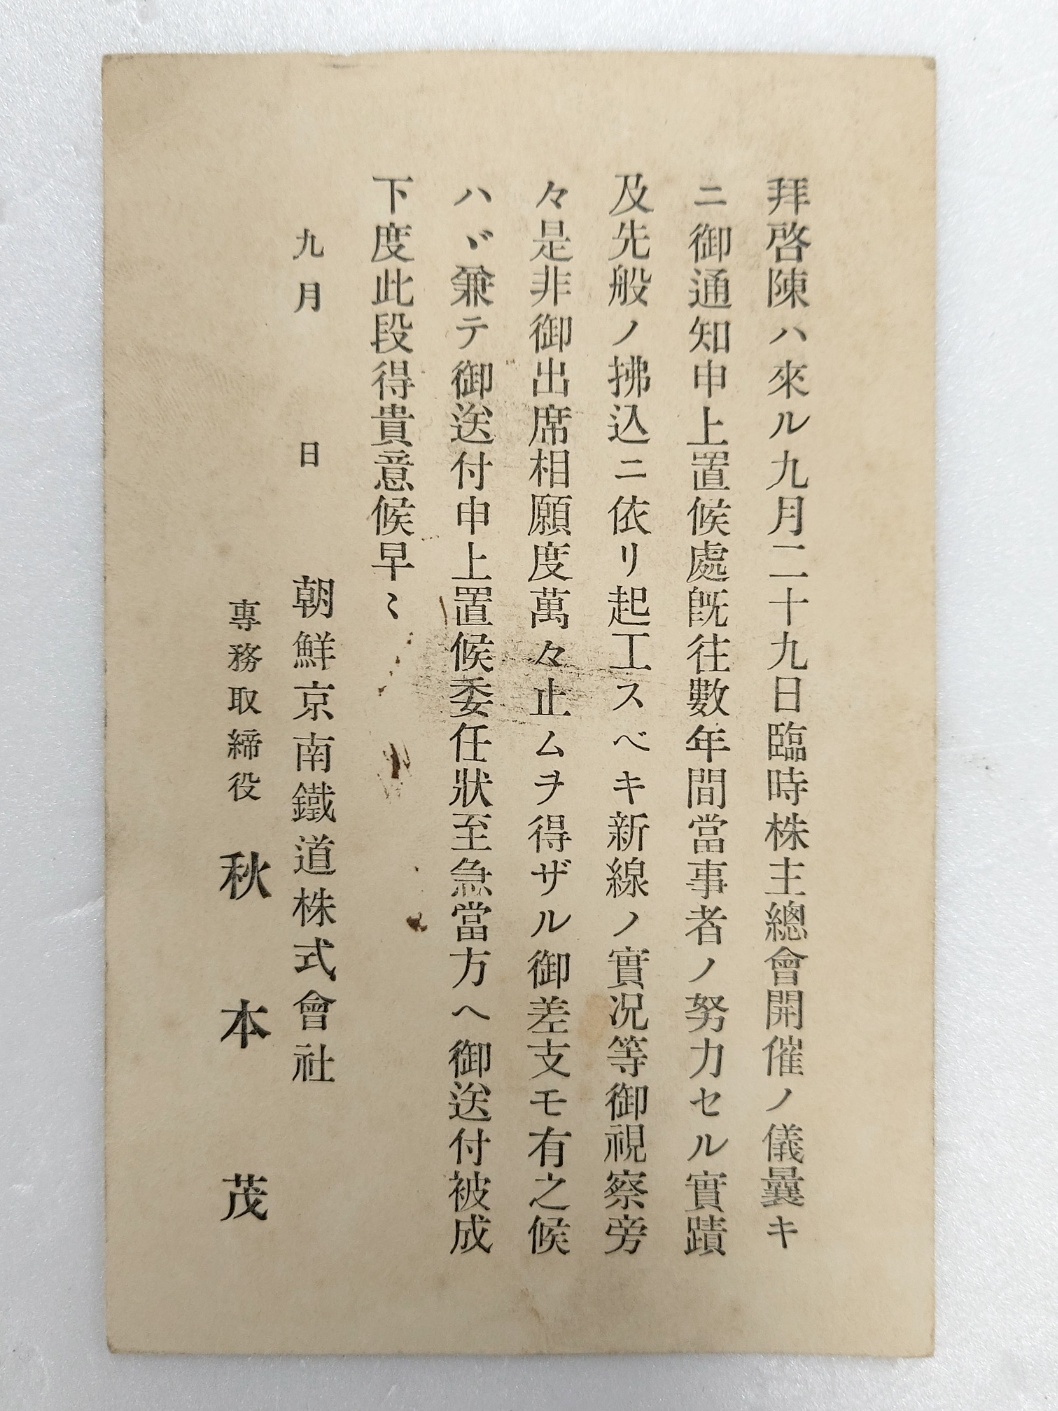 拜啓陳ハ來ル九月二十九日臨時株主總會開催ノ儀曩キ
ニ御通知申上置候處既往數年間當事者ノ努力セル實蹟
及先般ノ拂込ニ依リ起工スベキ新線ノ實况等御視察旁
々是非御出席相願度萬々止ムヲ得ザル御差支モ有之候
ハヾ兼テ御送付申上置候委任狀至急當方ヘ御送付被成
下度此段得貴意候早〻
九月　日
朝鮮京南鐵道株式會社
專務取締役　秋本茂